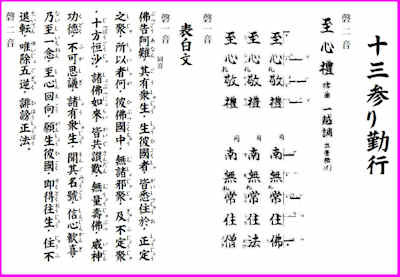 十三参り勤行
至心禮 一越調
至心敬禮 南無常住佛
至心敬禮 南無常住法
至心敬禮 南無常住僧
磬一音
表白文
磬一音
佛告阿難、其有衆生、生彼國者、皆悉住於、正定
之聚、所以者何、彼佛國中、無諸邪聚、及不定聚
、十方恒沙、諸佛如來、皆共讃歎、無量壽佛、威神
功德、不可思議、諸有衆生、聞其名號、信心歡喜
乃至一念、至心回向、願生彼國、即得往生、住不
退転、唯除五逆、誹謗正法。
磬二音